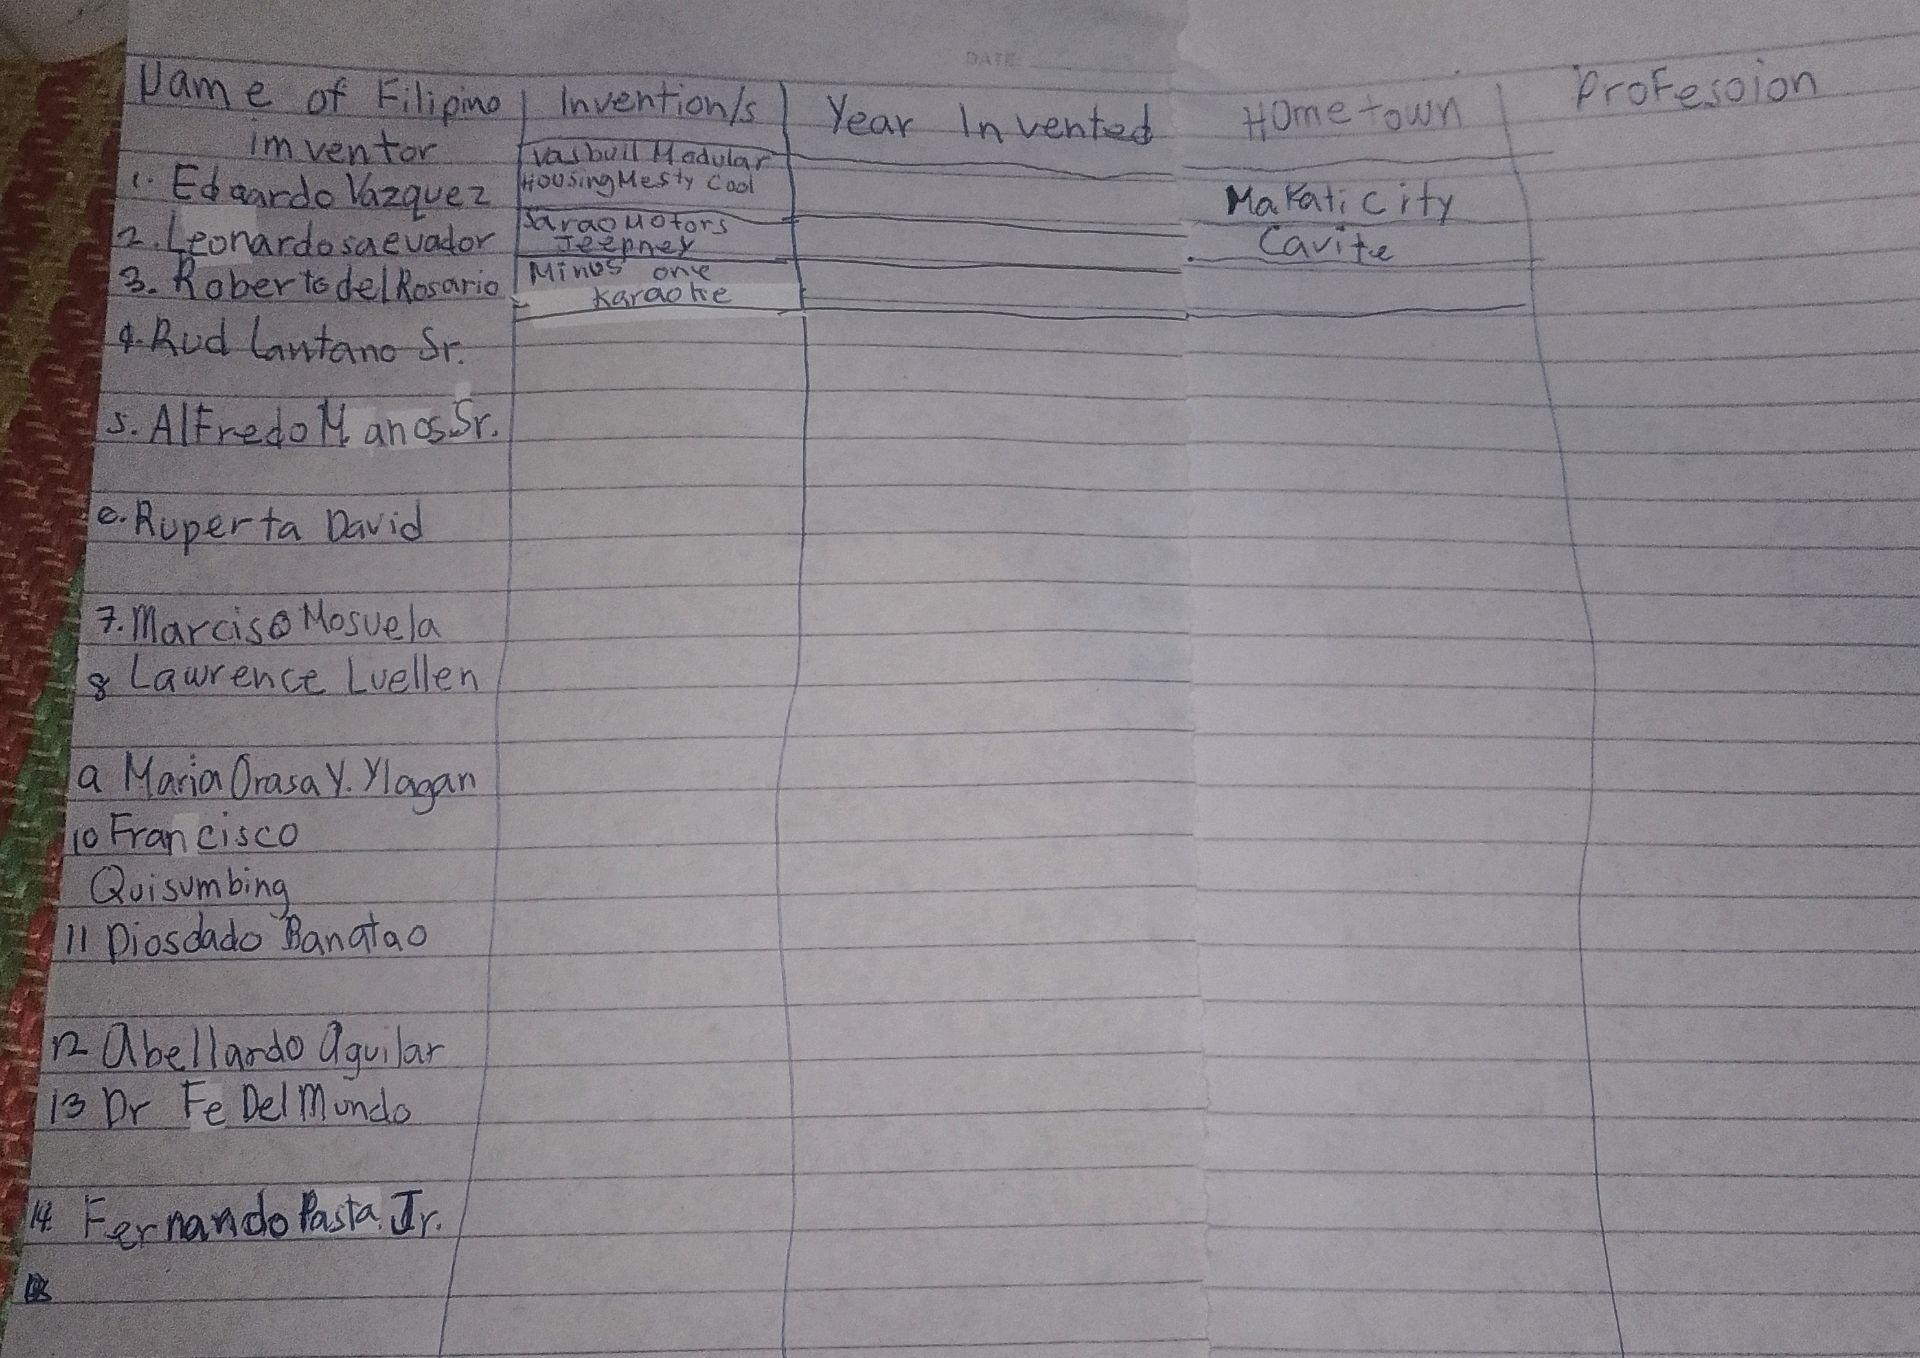 DATE
Name of Filipino Invention/s Year Invented Hometown Profession
imventor
Vasbuil Modular
1. Edgardo Vazquez Housing Mesty Cool Makati City
Sarao Motors
2. Leonardo saevador Jeepney Cavite
3. Roberto del Rosario Minus one
Karaoke
4. Rud Lantano Sr.
5. Alfredo M. anos Sr.
6. Ruperta David
7. Marciso Mosuela
8 Lawrence Luellen
9 Maria Orasa Y. Ylagan
10 Francisco
Quisumbing
11 Diosdado Banatao
12 Abellardo Aguilar
13 Dr Fe Del Mundo
14. Fernando Pasta Jr.